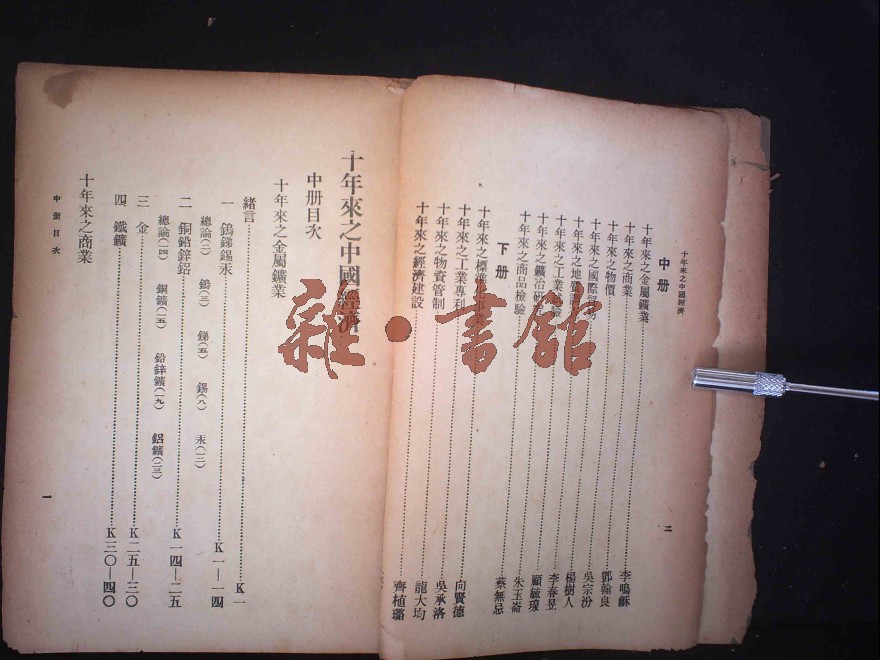 十年來之中國經濟
中册
十年來之金屬鑛業……李鳴龢
十年來之商業……鄧翰良
十年來之物價……吳宗汾
十年來之國際貿易……楊樹人
十年來之地質……李春昱
十年來之工業試驗……顧毓瑔
十年來之鑛冶研究……朱玉崙
十年來之商品檢驗……蔡無忌
下册
十年來之標準……向賢德
十年來之工業專利……吳承洛
十年來之物資管制……龍大均
十年來之經濟建設……齊植璐
二
十年來之中國經濟
中册目次
十年來之金屬鑛業
緒言……K一
一 鎢銻錫汞……K一—一四
總論(二) 鎢(三) 銻(五) 錫(八) 汞(一二)
二 銅鉛鋅鋁……K一四—二五
總論(一四) 銅鑛(一五) 鉛鋅鑛(一九) 鋁鑛(二三)
三 金……K二五—三〇
四 鐵鑛……K三〇—四〇
十年來之商業
中册目次
一
雜·書館